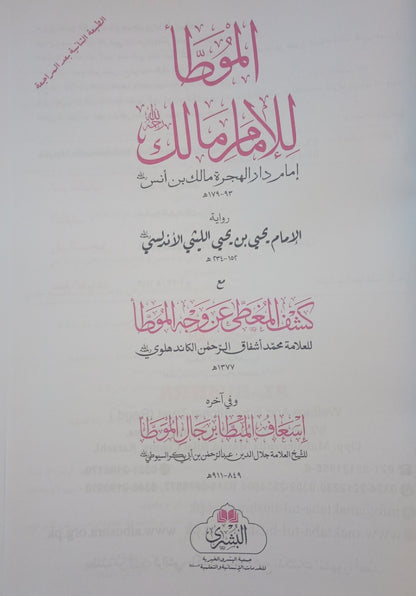 الطبعة الثانية بعد المراجعة
الموطأ
للإمام مالك رحمه الله
إمام دار الهجرة مالك بن أنس
٩٣-١٧٩هـ
رواية
الإمام يحيى بن يحيى الليثي الأندلسي
١٥٢-٢٣٤هـ
مع
كشف المغطى عن وجه الموطأ
للعلامة محمد أشفاق الرحمٰن الكاندهلوي
١٣٧٧هـ
وفي آخره
إسعاف المبطأ برجال الموطأ
للشيخ العلامة جلال الدين عبد الرحمن بن أبي بكر السيوطي
٨٤٩-٩١١هـ
البشرى
جمعية البشرى الخيرية
للخدمات الإنسانية والتعليمية